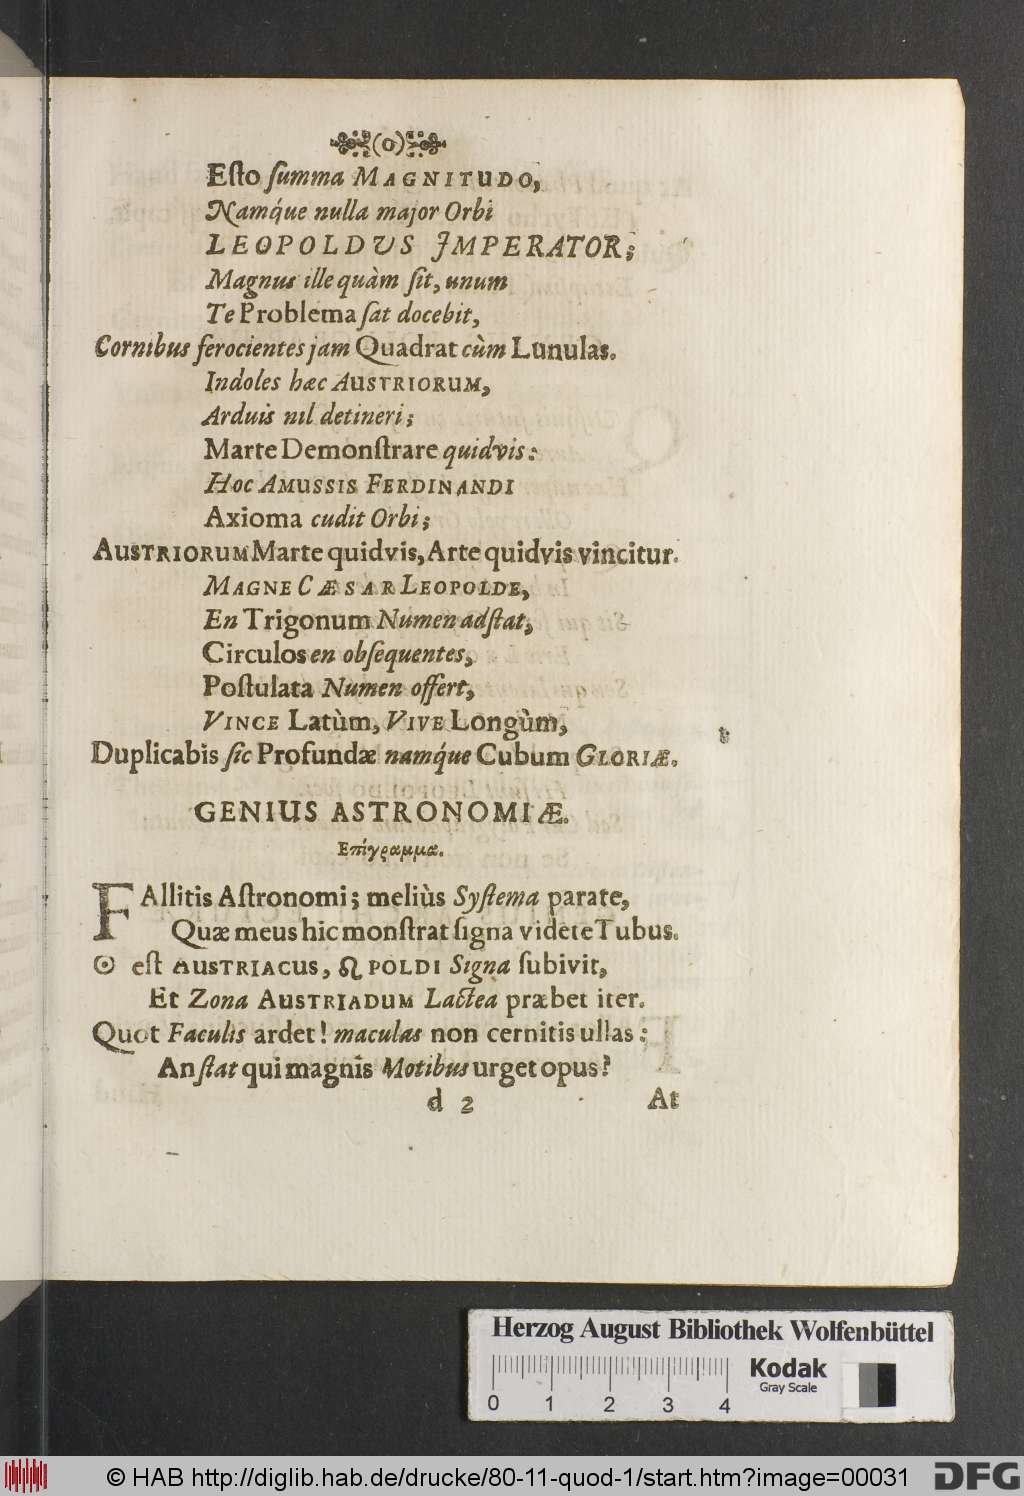 (o)
Eſto ſumma MAGNITUDO,
Namq́ue nulla major Orbi
LEOPOLDVS IMPERATOR;
Magnus ille quàm ſit, unum
Te Problema ſat docebit,
Cornibus ferocientes jam Quadrat cùm Lunulas.
Indoles hæc AUSTRIORUM,
Arduis nil detineri;
Marte Demonſtrare quidvis:
HOC AMUSSIS FERDINANDI
Axioma cudit Orbi;
AUSTRIORUM Marte quidvis, Arte quidvis vincitur.
MAGNE CÆSAR LEOPOLDE,
En Trigonum Numen adſtat,
Circulos en obſequentes,
Poſtulata Numen offert,
VINCE Latùm, VIVE Longùm,
Duplicabis ſic Profundæ namq́ue Cubum GLORIÆ.
GENIUS ASTRONOMIÆ.
Επίγραμμα.
FAllitis Aſtronomi; meliùs Syſtema parate,
Quæ meus hic monſtrat ſigna videte Tubus.
☉ eſt AUSTRIACUS, ♌POLDI Signa ſubivit,
Et Zona AUSTRIADUM Lactea præbet iter.
Quot Faculis ardet! maculas non cernitis ullas:
An ſtat qui magnis Motibus urget opus?
d 2 At
Herzog August Bibliothek Wolfenbüttel
0 1 2 3 4
Kodak
Gray Scale
© HAB http://diglib.hab.de/drucke/80-11-quod-1/start.htm?image=00031
DFG